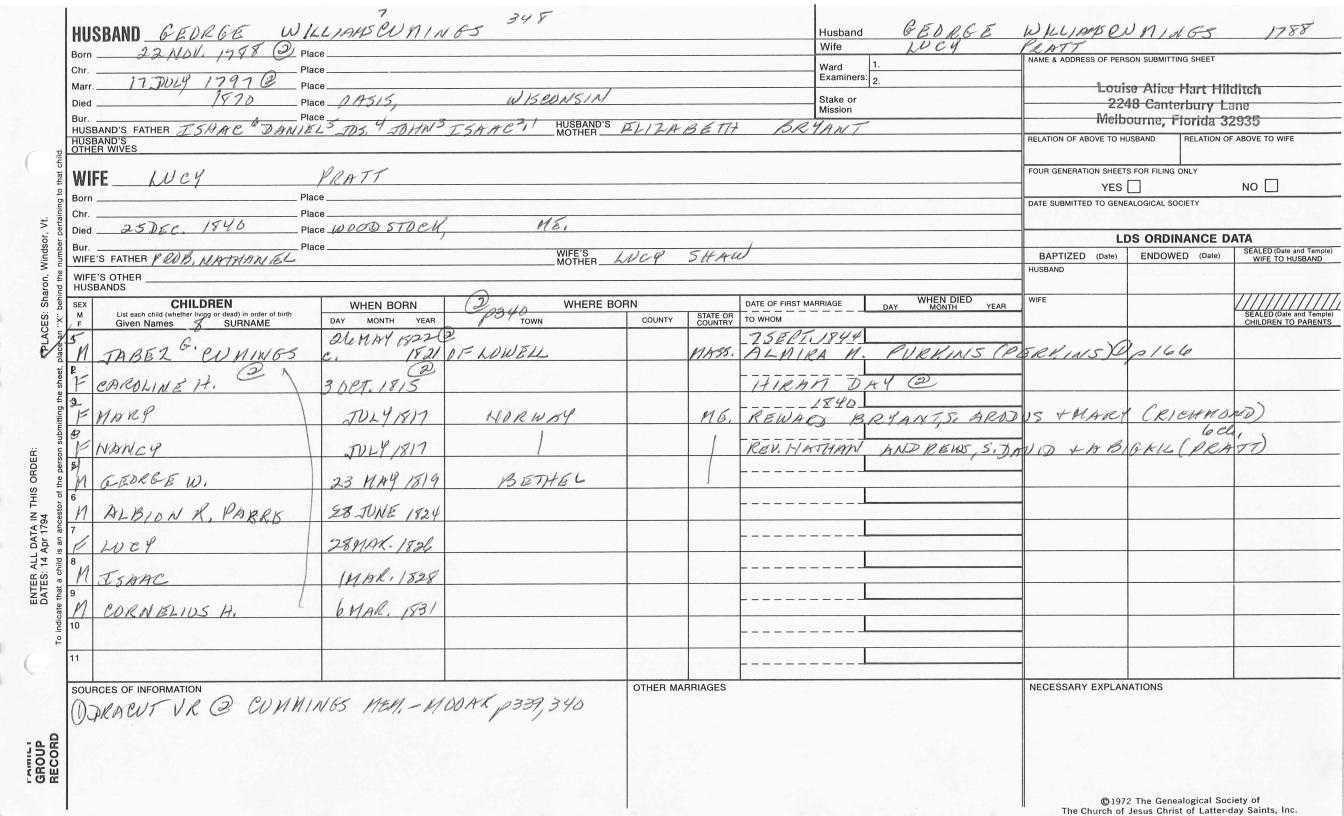 HUSBAND GEORGE WILLIAMS CUMINGS 7 348
Born 22 NOV. 1788 ② Place
Chr. Place
Marr. 17 JULY 1797 ② Place
Died 1870 Place OASIS, WISCONSIN
Bur. Place
HUSBAND'S FATHER ISHAC 6 DANIEL 5 JOS. 4 JOHN 3 ISAAC 2,1 HUSBAND'S MOTHER ELIZABETH BRYANT
HUSBAND'S OTHER WIVES
WIFE LUCY PRATT
Born Place
Chr. Place
Died 25 DEC. 1840 Place WOODSTOCK, ME.
Bur. Place
WIFE'S FATHER PROB. NATHANIEL WIFE'S MOTHER LUCY SHAW
WIFE'S OTHER HUSBANDS
Husband GEORGE WILLIAMS CUMINGS 1788
Wife LUCY PRATT
Ward Examiners: 1. 2.
Stake or Mission
NAME & ADDRESS OF PERSON SUBMITTING SHEET
Louise Alice Hart Hilditch
2248 Canterbury Lane
Melbourne, Florida 32935
RELATION OF ABOVE TO HUSBAND RELATION OF ABOVE TO WIFE
FOUR GENERATION SHEETS FOR FILING ONLY
YES NO
DATE SUBMITTED TO GENEALOGICAL SOCIETY
LDS ORDINANCE DATA
BAPTIZED (Date) ENDOWED (Date) SEALED (Date and Temple) WIFE TO HUSBAND
HUSBAND
WIFE
SEALED (Date and Temple) CHILDREN TO PARENTS
SEX M F
CHILDREN
List each child (whether living or dead) in order of birth
Given Names SURNAME
WHEN BORN
DAY MONTH YEAR
② p340
WHERE BORN
TOWN COUNTY STATE OR COUNTRY
DATE OF FIRST MARRIAGE
TO WHOM
WHEN DIED
DAY MONTH YEAR
26 MAY 1822 ② 7 SEPT. 1844
M JABEZ G. CUMINGS c. 1821 OF LOWELL MASS. ALMIRA M. PURKINS (PERKINS) ② p166
F CAROLINE H. ② 3 OCT. 1815 ② HIRAM DAY ②
1840
F MARY JULY 1817 NORWAY ME. REWARD BRYANT, S. ARODUS + MARY (RICHMOND)
6 ch.
F NANCY JULY 1817 REV. NATHAN ANDREWS, S. DAVID + ABIGAIL (PRATT)
5 M GEORGE W. 23 MAY 1819 BETHEL
6 M ALBION R. PARRIS 28 JUNE 1824
7 F LUCY 28 MAR. 1826
8 M ISAAC 1 MAR. 1828
9 M CORNELIUS H. 6 MAR. 1831
10
11
SOURCES OF INFORMATION
① DRACUT VR ② CUMMINGS MEM. - MOOAR p339, 340
OTHER MARRIAGES
NECESSARY EXPLANATIONS
©1972 The Genealogical Society of
The Church of Jesus Christ of Latter-day Saints, Inc.
PLACES: Sharon, Windsor, Vt.
To indicate that a child is an ancestor of the person submitting the sheet, place an "X" behind the number pertaining to that child.
ENTER ALL DATA IN THIS ORDER:
DATES: 14 Apr 1794
FAMILY
GROUP
RECORD